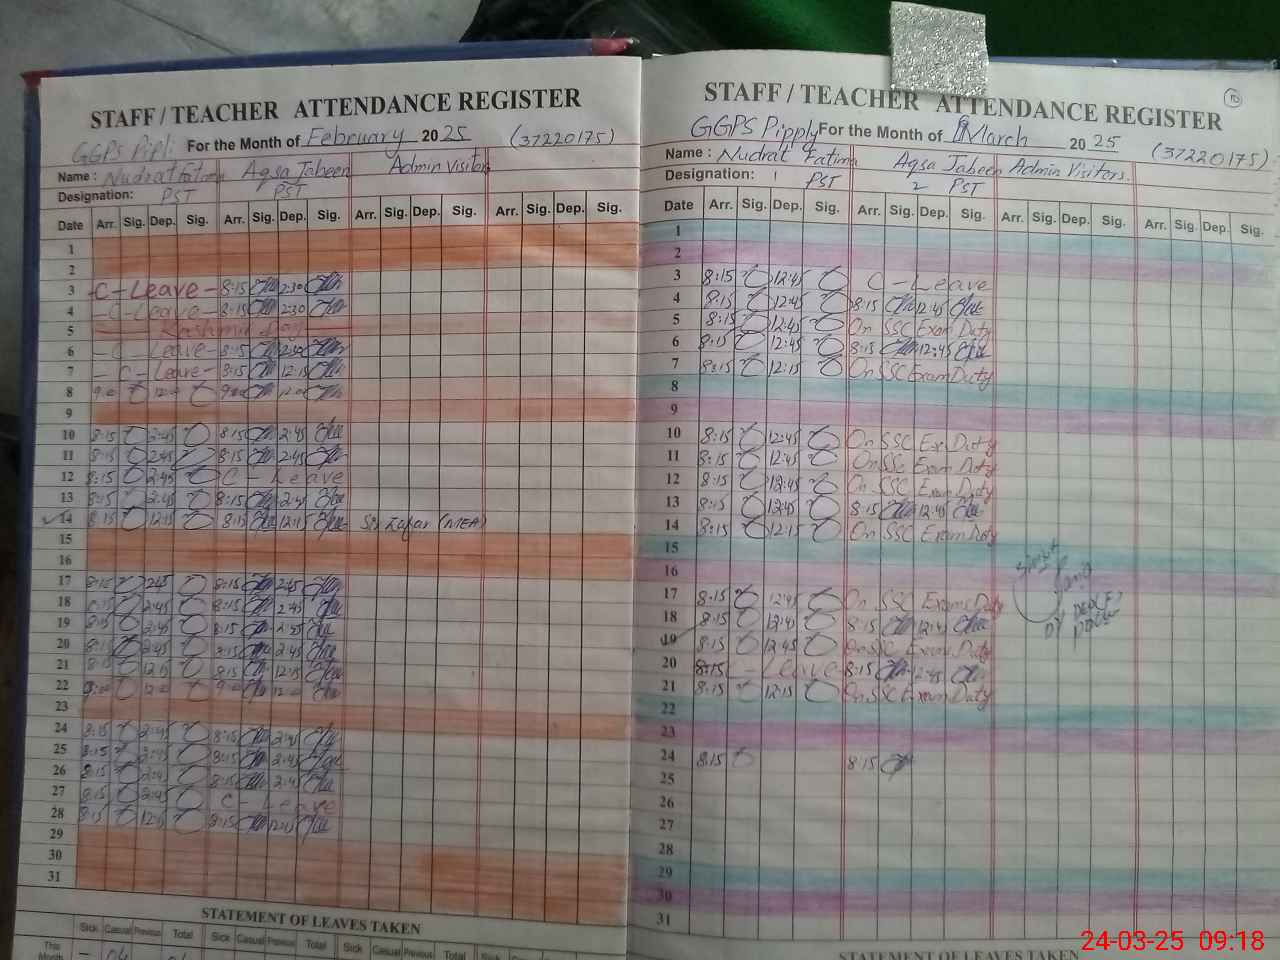 STAFF / TEACHER ATTENDANCE REGISTER
GGPS Pipli For the Month of February 2025 (37220175)
Name : Nudrat Fatima Aqsa Jabeen Admin Visitors
Designation: PST PST
Date Arr. Sig. Dep. Sig. Arr. Sig. Dep. Sig. Arr. Sig. Dep. Sig. Arr. Sig. Dep. Sig.
1
2
3 - C - Leave - 8:15 2:30
4 - C - Leave - 8:15 2:30
5 Kashmir Day
6 - C - Leave - 8:15 2:30
7 - C - Leave - 8:15 12:15
8 9:00 12:00 9:00 12:00
9
10 8:15 2:45 8:15 2:45
11 8:15 2:45 8:15 2:45
12 8:15 2:45 C - Leave
13 8:15 2:45 8:15 2:45
14 8:15 12:15 8:15 12:15 Sir Zafar (MEA)
15
16
17 8:15 2:45 8:15 2:45
18 8:15 2:45 8:15 2:45
19 8:15 2:45 8:15 2:45
20 8:15 2:45 8:15 2:45
21 8:15 12:15 8:15 12:15
22 9:00 12:00 9:00 12:00
23
24 8:15 2:45 8:15 2:45
25 8:15 2:45 8:15 2:45
26 8:15 2:45 8:15 2:45
27 8:15 2:45 C - Leave
28 8:15 12:15 8:15 12:15
29
30
31
STATEMENT OF LEAVES TAKEN
Sick Casual Previous Total Sick Casual Previous Total Sick Casual Previous Total
This Month - 04
STAFF / TEACHER ATTENDANCE REGISTER 10
GGPS Pipply For the Month of March 2025 (37220175)
Name : Nudrat Fatima Aqsa Jabeen Admin Visitors.
Designation: 1 PST 2 PST
Date Arr. Sig. Dep. Sig. Arr. Sig. Dep. Sig. Arr. Sig. Dep. Sig. Arr. Sig. Dep. Sig.
1
2
3 8:15 12:45 C - Leave
4 8:15 12:45 8:15 12:45
5 8:15 12:45 On SSC Exam Duty
6 8:15 12:45 8:15 12:45
7 8:15 12:15 On SSC Exam Duty
8
9
10 8:15 12:45 On SSC Exam Duty
11 8:15 12:45 On SSC Exam Duty
12 8:15 12:45 On SSC Exam Duty
13 8:15 12:45 8:15 12:45
14 8:15 12:15 On SSC Exam Duty
15
16
17 8:15 12:45 On SSC Exam Duty
18 8:15 12:45 8:15 12:45
19 8:15 12:45 On SSC Exam Duty
20 8:15 C - Leave 8:15 12:45
21 8:15 12:15 On SSC Exam Duty
22
23
24 8:15 8:15
25
26
27
28
29
30
31
STATEMENT OF LEAVES TAKEN
24-03-25 09:18